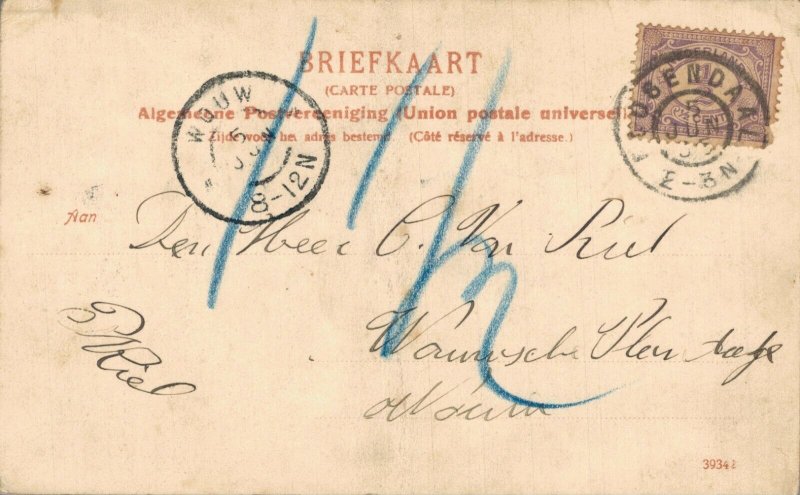 BRIEFKAART
(CARTE POSTALE)
Algemeene Postvereeniging (Union postale universelle)
Zijde voor het adres bestemd. (Côté réservé à l'adresse.)
WOUW
5
JUN
8-12N
ROSENDAAL
5
JUN
2-3N
Aan
Den Heer C. Van Riel
Wouwsche Plantage
Wouw
Riel
3934